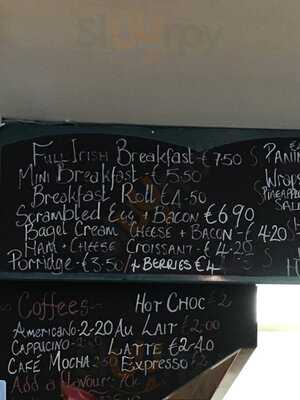 Sluurpy
Full Irish Breakfast - €7.50
Mini Breakfast - €5.50
Breakfast Roll €4.50
Scrambled Egg + Bacon €6.90
Bagel Cream Cheese + Bacon - €4.20
Ham + Cheese Croissant - €4.20
Porridge - €3.50 / + Berries €4
Panin
Wraps
Pineapple
Sal
~ Coffees ~
Hot Choc €2
Americano 2.20
Au Lait €2.00
Cappucino 2.20
Latte €2.40
Café Mocha 2.50
Expresso €2
Add a flavour 70c